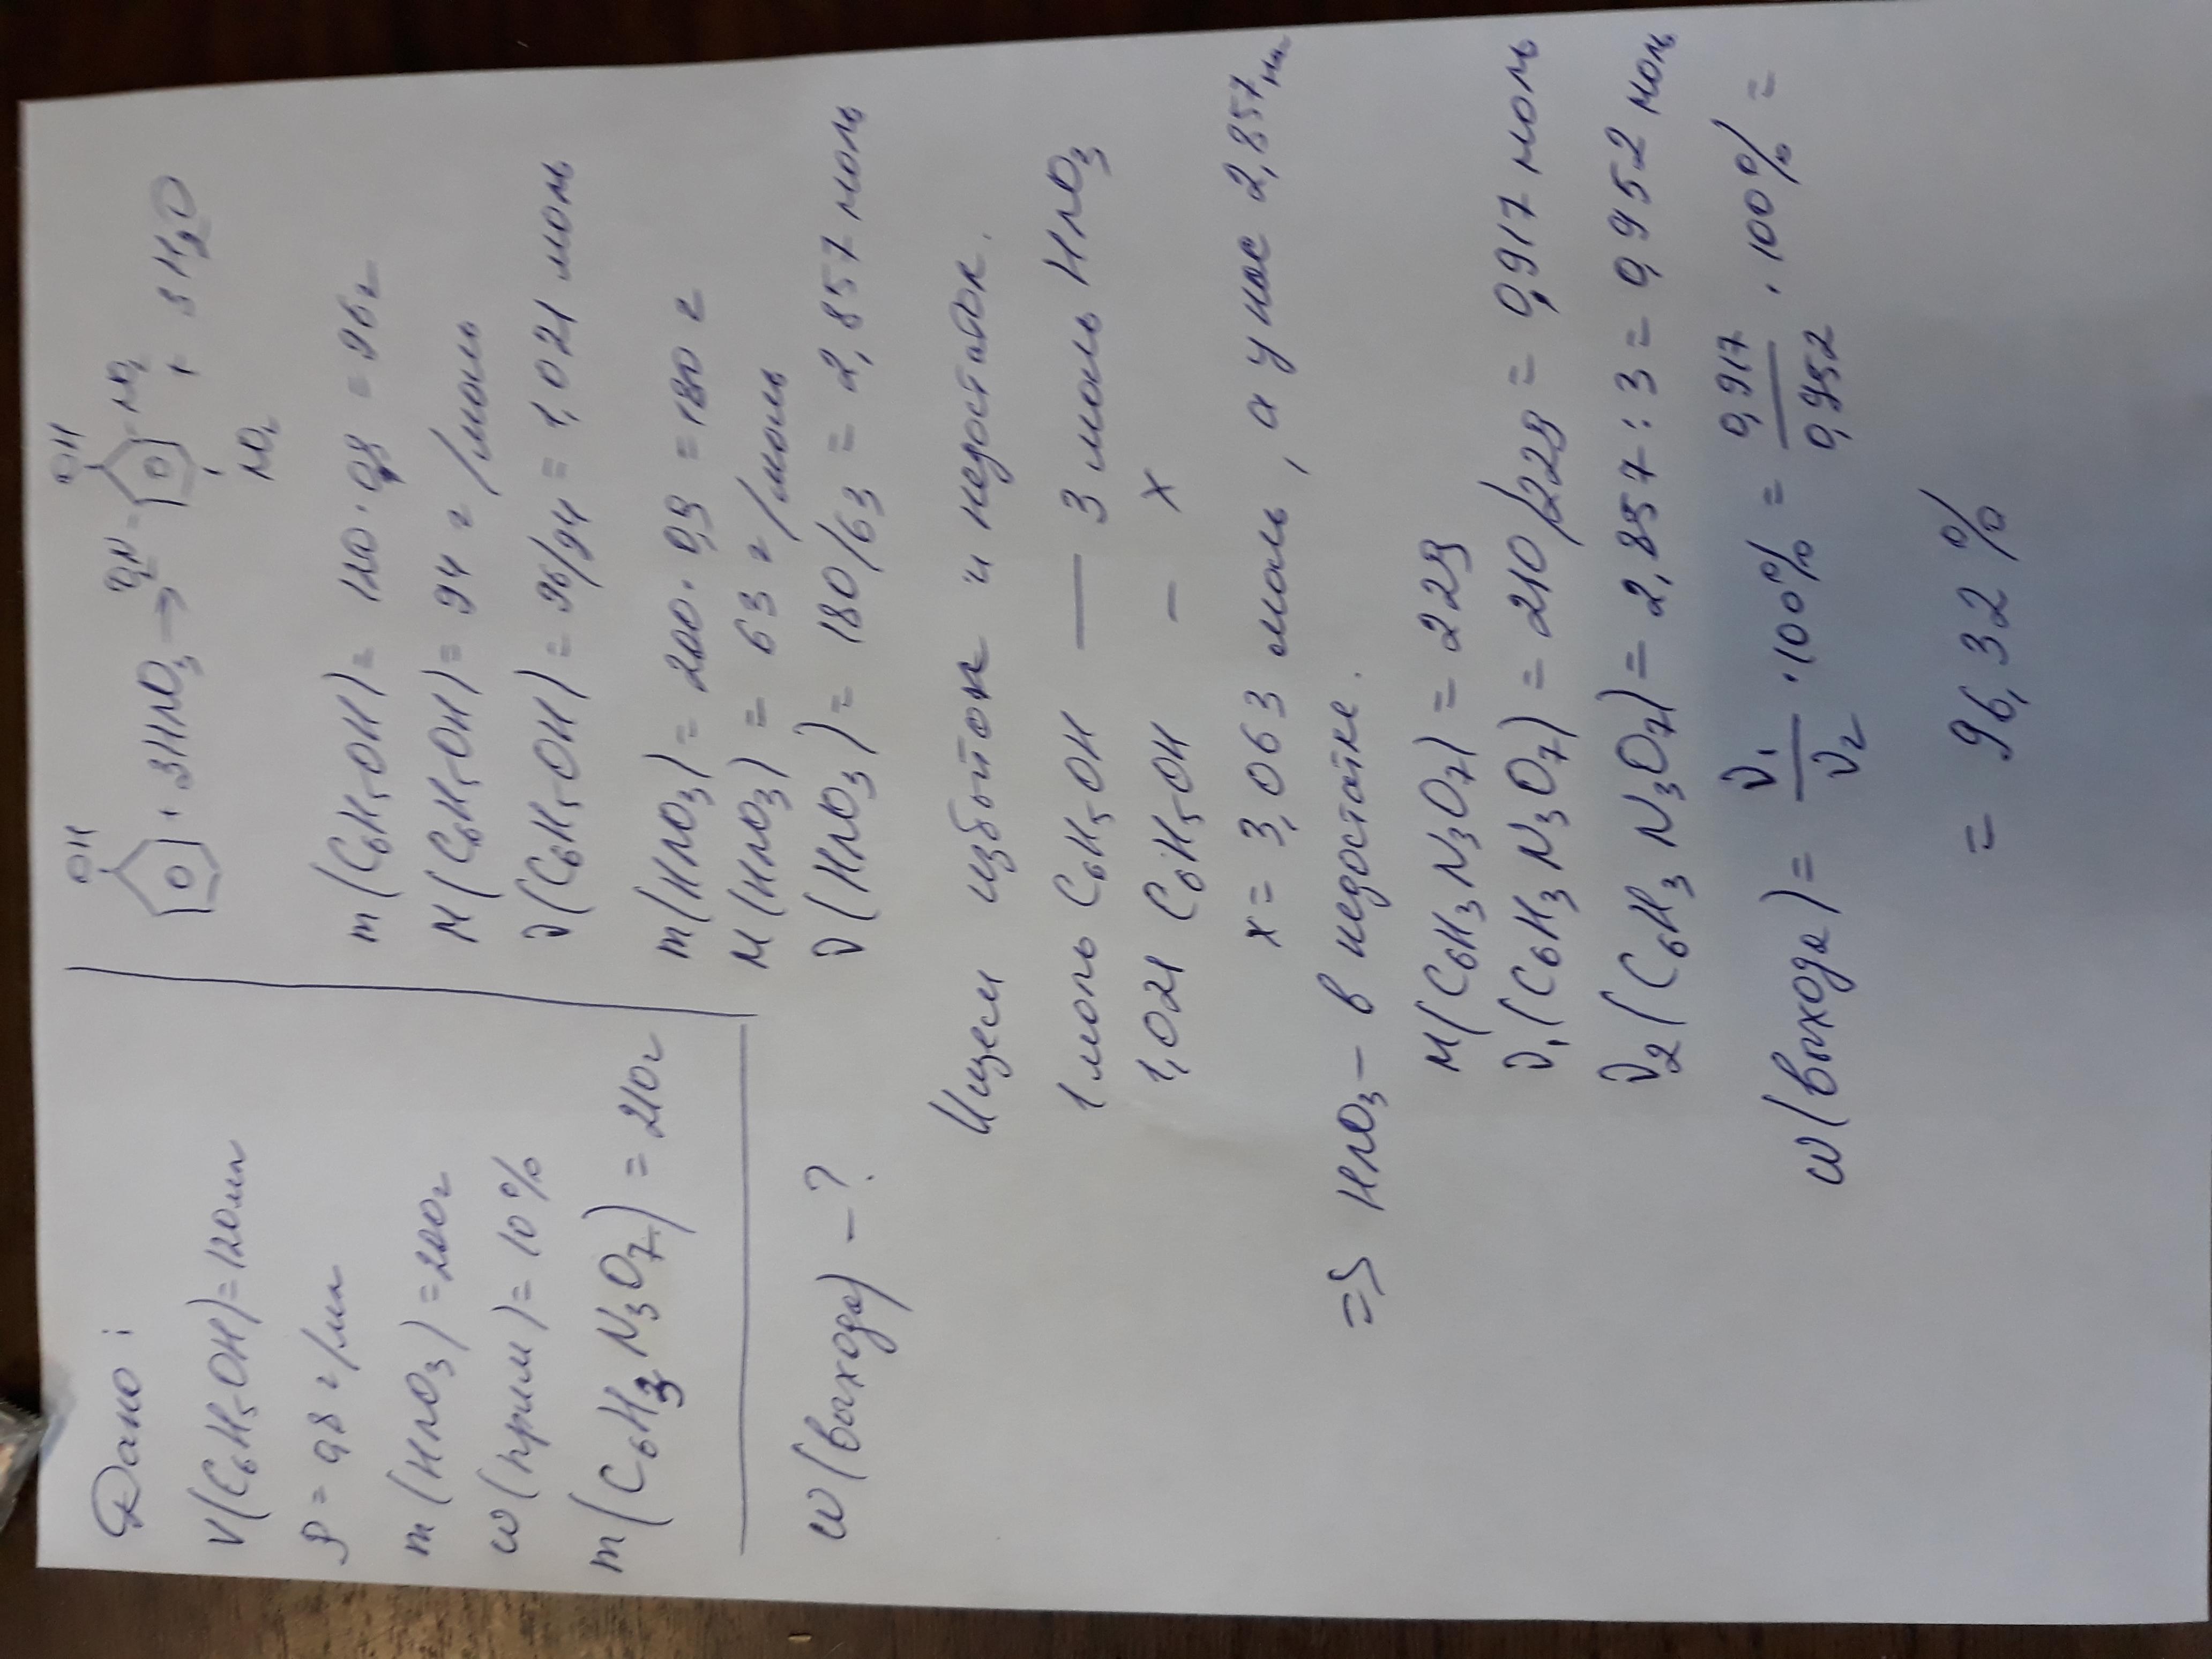 Дано:
V(C6H5OH)=120мл
ρ = 0,8 г/мл
m(HNO3)=200г
ω(прим)=10%
m(C6H3N3O7)=210г
ω(выхода) - ?
OH
+ 3HNO3 → O2N- OH -NO2 + 3H2O
NO2
m(C6H5OH)= 120·0,8 = 96г
M(C6H5OH)= 94 г/моль
ν(C6H5OH)= 96/94 = 1,021 моль
m(HNO3)= 200·0,9 = 180 г
M(HNO3) = 63 г/моль
ν(HNO3)= 180/63 = 2,857 моль
Ищем избыток и недостаток.
1 моль C6H5OH — 3 моль HNO3
1,021 C6H5OH — x
x = 3,063 моль, а у нас 2,857
=> HNO3 - в недостатке.
M(C6H3N3O7) = 229
ν1(C6H3N3O7) = 210/229 = 0,917 моль
ν2(C6H3N3O7) = 2,857:3 = 0,952 моль
ω(выхода) = ν1/ν2 ·100% = 0,917/0,952 ·100% =
= 96,32%